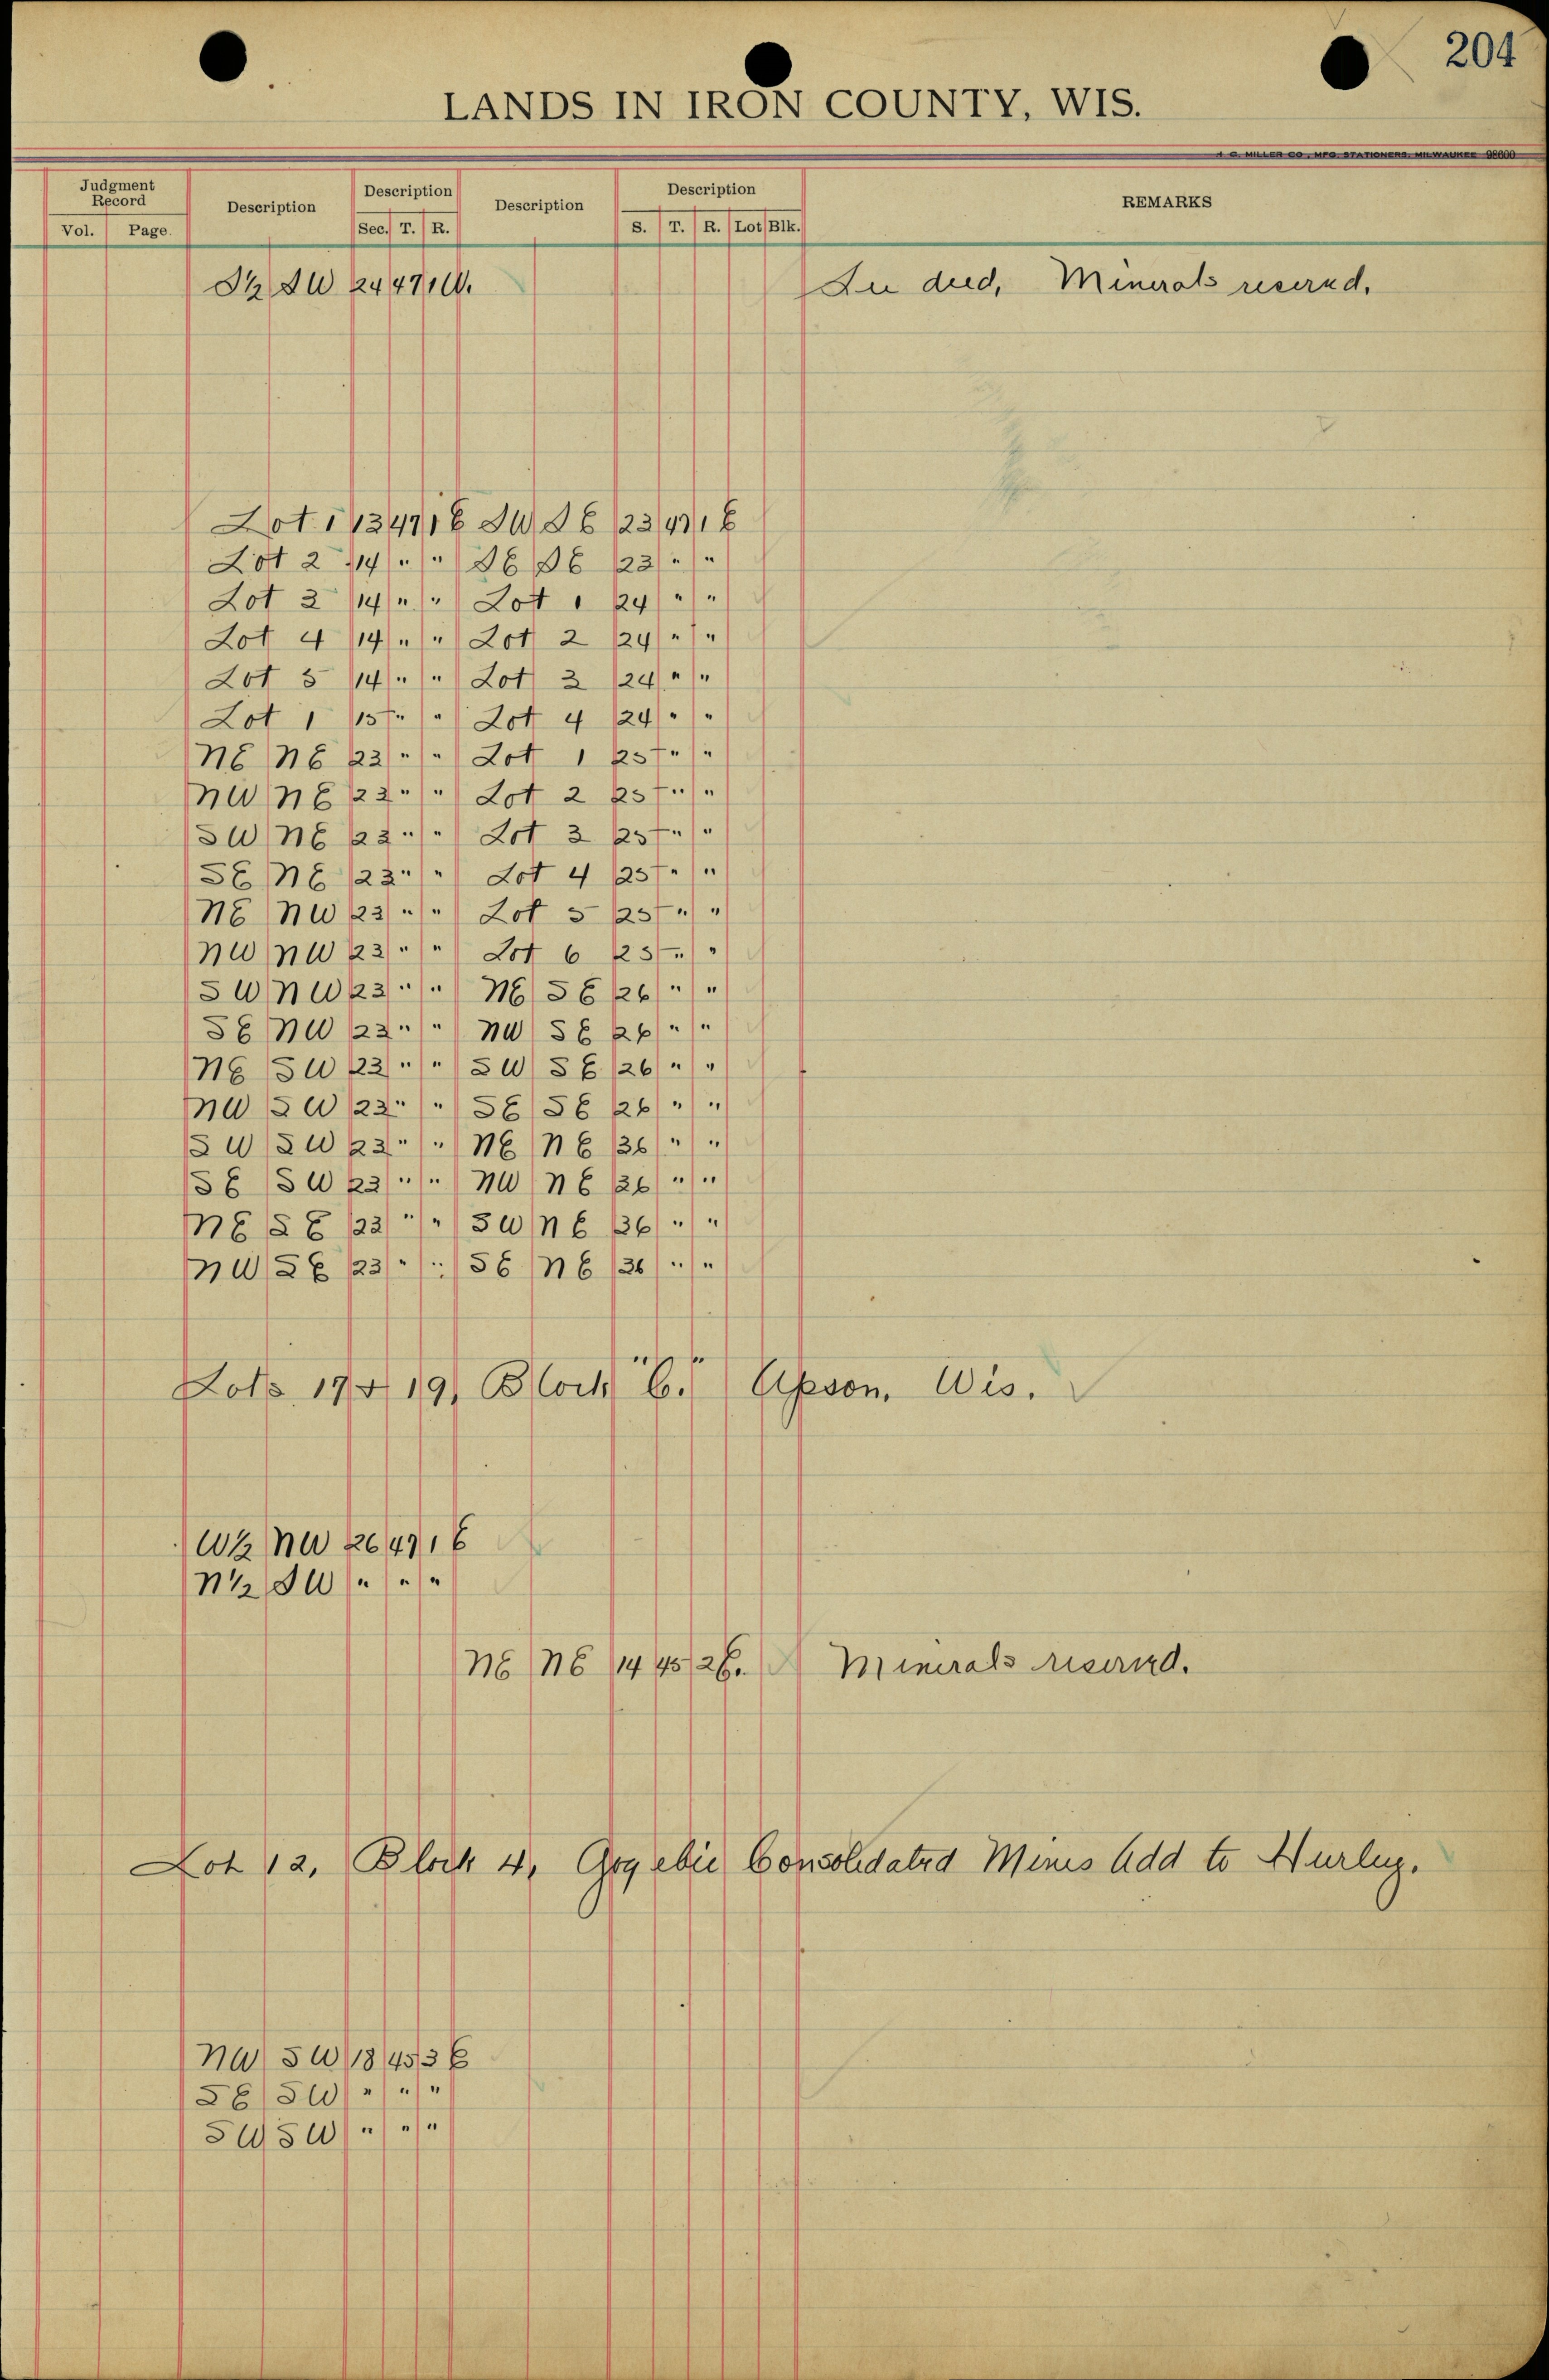 204
LANDS IN IRON COUNTY, WIS.
H. C. MILLER CO., MFG. STATIONERS, MILWAUKEE 98600
Judgment Record Description Description Description Description REMARKS
Vol. Page. Sec. T. R. S. T. R. Lot Blk.
S½ SW 24 47 1 W. See deed, Minerals reserved.
Lot 1 13 47 1 E SW SE 23 47 1 E
Lot 2 14 " " SE SE 23 " "
Lot 3 14 " " Lot 1 24 " "
Lot 4 14 " " Lot 2 24 " "
Lot 5 14 " " Lot 3 24 " "
Lot 1 15 " " Lot 4 24 " "
NE NE 23 " " Lot 1 25 " "
NW NE 23 " " Lot 2 25 " "
SW NE 23 " " Lot 3 25 " "
SE NE 23 " " Lot 4 25 " "
NE NW 23 " " Lot 5 25 " "
NW NW 23 " " Lot 6 25 " "
SW NW 23 " " NE SE 26 " "
SE NW 23 " " NW SE 26 " "
NE SW 23 " " SW SE 26 " "
NW SW 23 " " SE SE 26 " "
SW SW 23 " " NE NE 36 " "
SE SW 23 " " NW NE 36 " "
NE SE 23 " " SW NE 36 " "
NW SE 23 " " SE NE 36 " "
Lots 17 & 19, Block "C." Upson, Wis.
W½ NW 26 47 1 E
N½ SW " " "
NE NE 14 45 2 E. Minerals reserved.
Lot 12, Block 4, Gogebic Consolidated Mines Add to Hurley.
NW SW 18 45 3 E
SE SW " " "
SW SW " " "